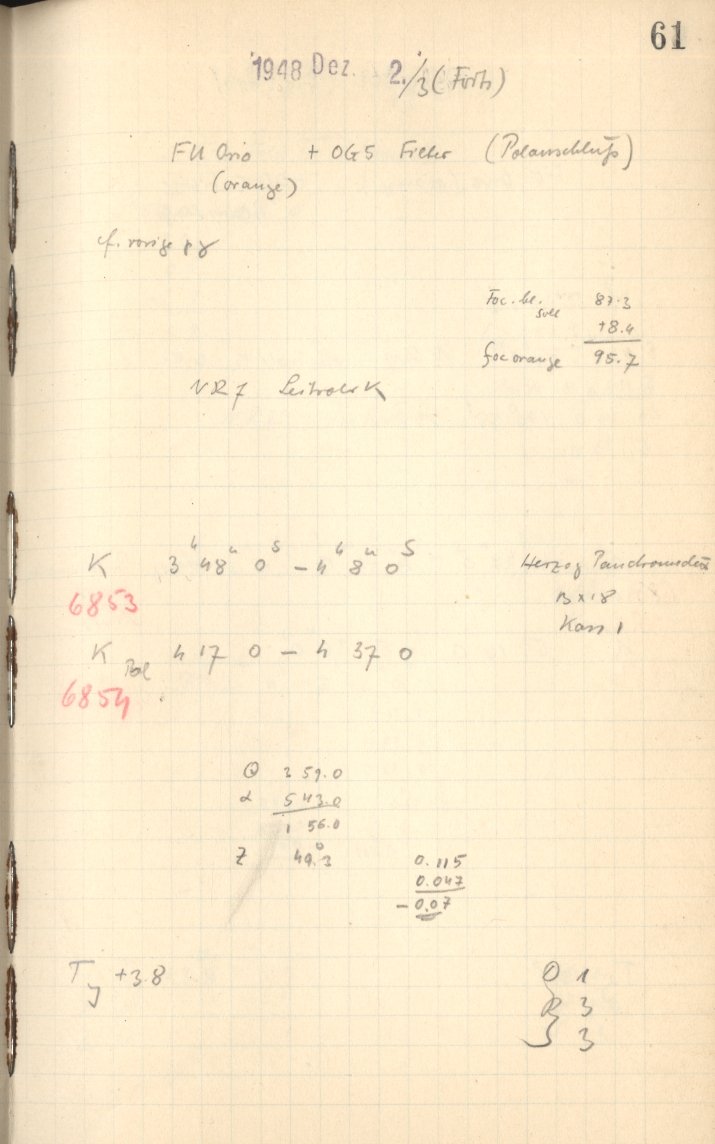 61
1948 Dez. 2./3 (Forts)
FU Orio + OG5 Filter (Polanschluß)
(orange)
cf. vorige pg
Foc. bl. soll 87.3
+8.4
foc orange 95.7
K 3h 48m 0s – 4h 8m 0s
6853
Herzog
B x 18
Kass 1
K Pol 4 17 0 – 4 37 0
6854
Θ 3 59.0
α 5 43.0
1 56.0
Z 49.°3
0.115
0.047
– 0.07
T +3.8
Q 1
R 3
3